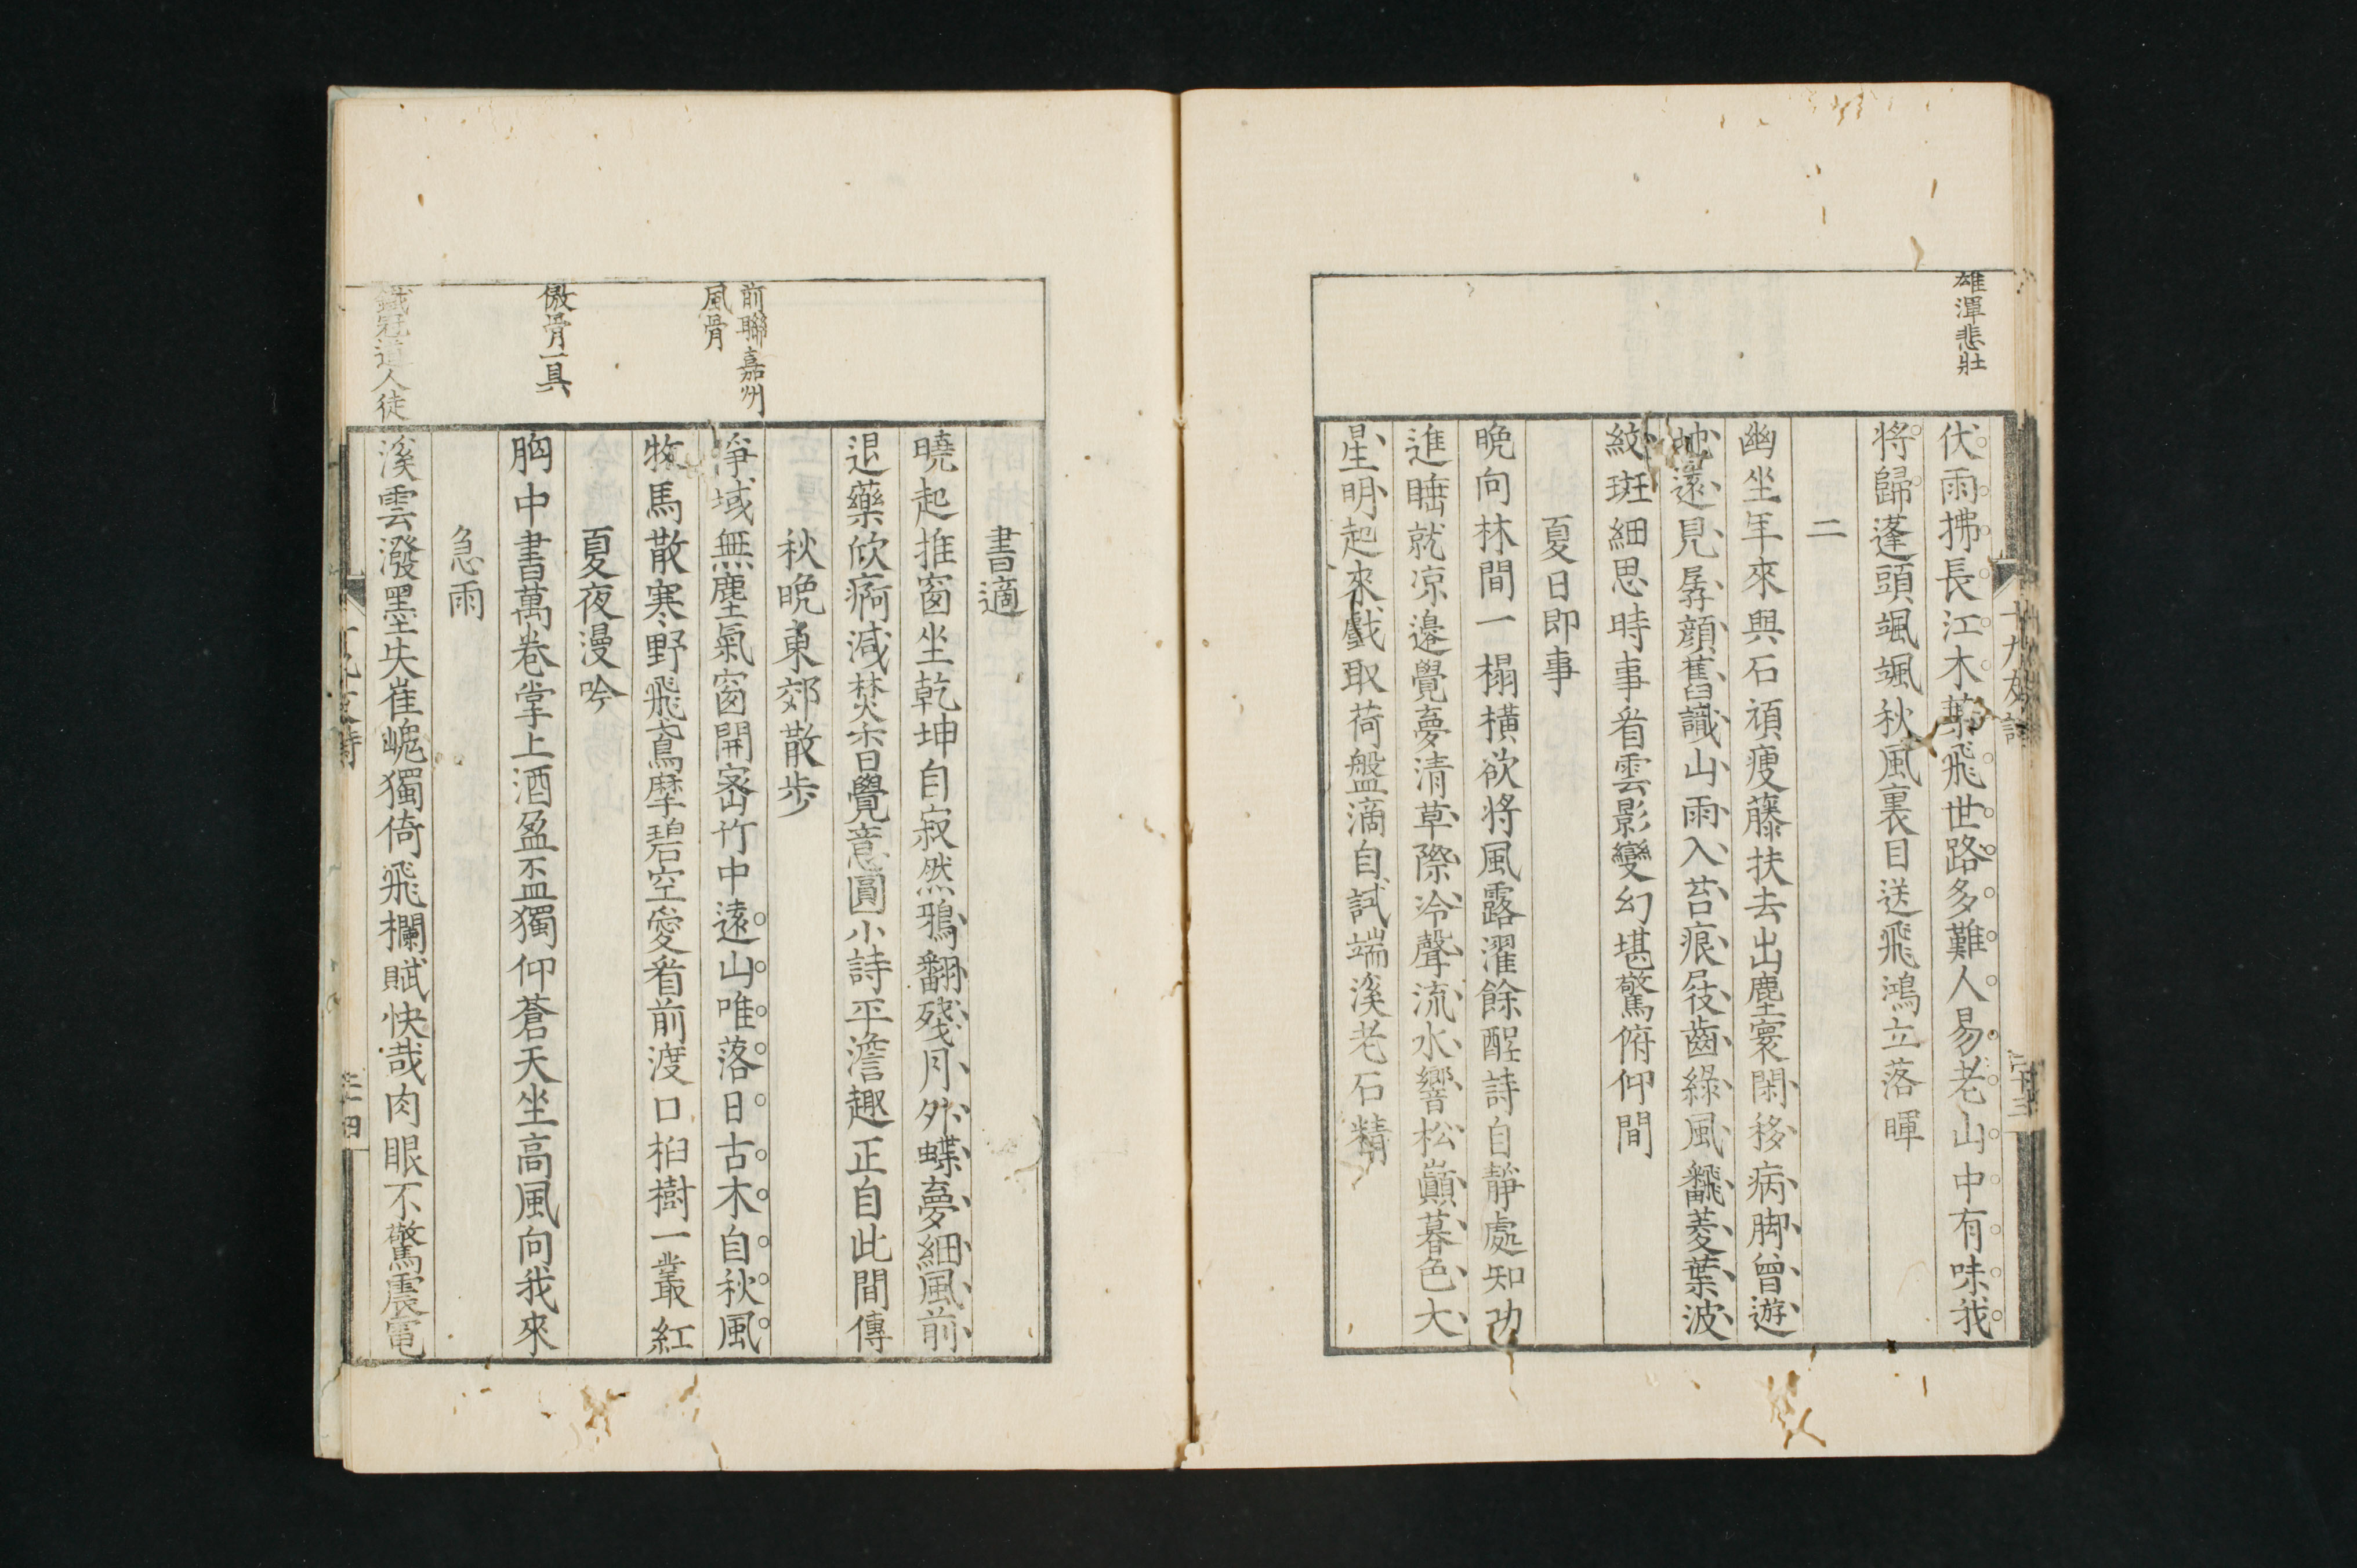 雄渾悲壯
伏雨拂長江木葉飛世路多難人易老山中有味我
將歸蓬頭颯颯秋風裏目送飛鴻立落暉
二
幽坐年來與石頑瘦藤扶去出塵寰閑移病脚曾遊
地遠見孱顏舊識山雨入苔痕屐齒綠風飜菱葉波
紋斑細思時事看雲影變幻堪驚俯仰間
夏日即事
晩向林間一榻橫欲將風露濯餘酲詩自靜處知功
進睡就凉邊覺夢清草際冷聲流水響松巔暮色大
星明起來戲取荷盤滴自試端溪老石精
前聯嘉州
風骨
傲骨一具
鐵冠道人徒
書適
曉起推窗坐乾坤自寂然鴉翻殘月外蝶夢細風前
退藥欣痾減焚香覺意圓小詩平澹趣正自此間傳
秋晩東郊散步
淨域無塵氣窗開密竹中遠山唯落日古木自秋風
牧馬散寒野飛鳶摩碧空愛看前渡口桕樹一叢紅
夏夜漫吟
胸中書萬卷掌上酒盈盃獨仰蒼天坐高風向我來
急雨
溪雲潑墨失崔嵬獨倚飛欄賦快哉肉眼不驚震電